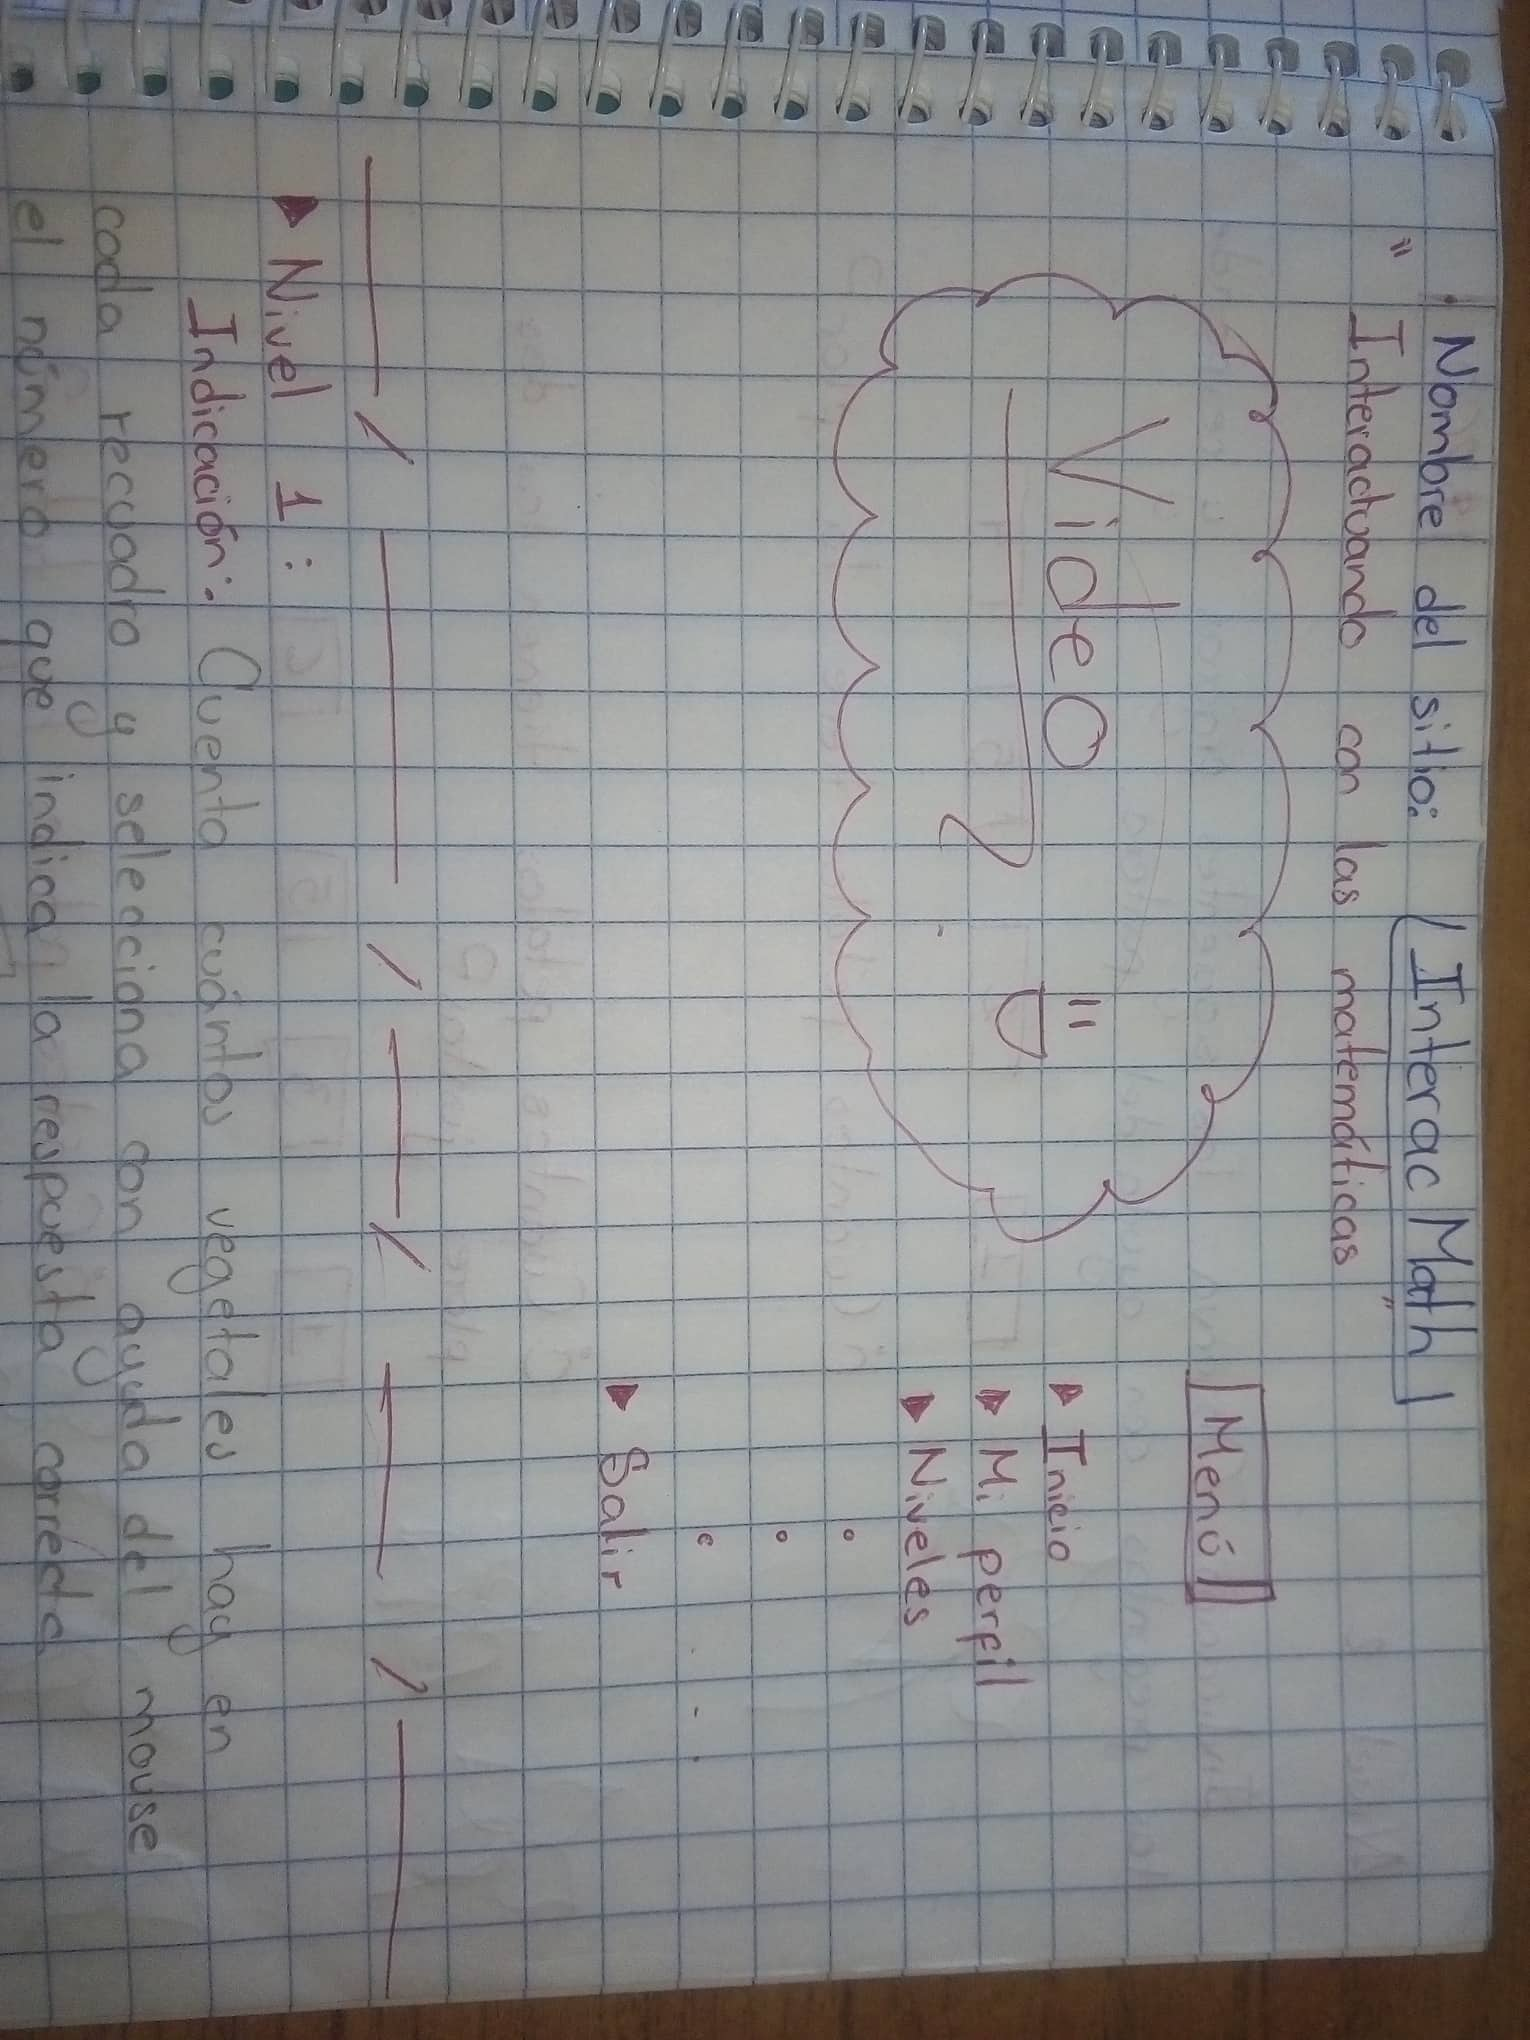 · Nombre del sitio: Interac Math
" Interactuando con las matemáticas "
Video
Menú
▸ Inicio
▸ Mi perfil
▸ Niveles
▸ Salir
▸ Nivel 1 :
Indicación: Cuenta cuántos vegetales hay en
cada recuadro y selecciona con ayuda del mouse
el número que indica la respuesta correcta